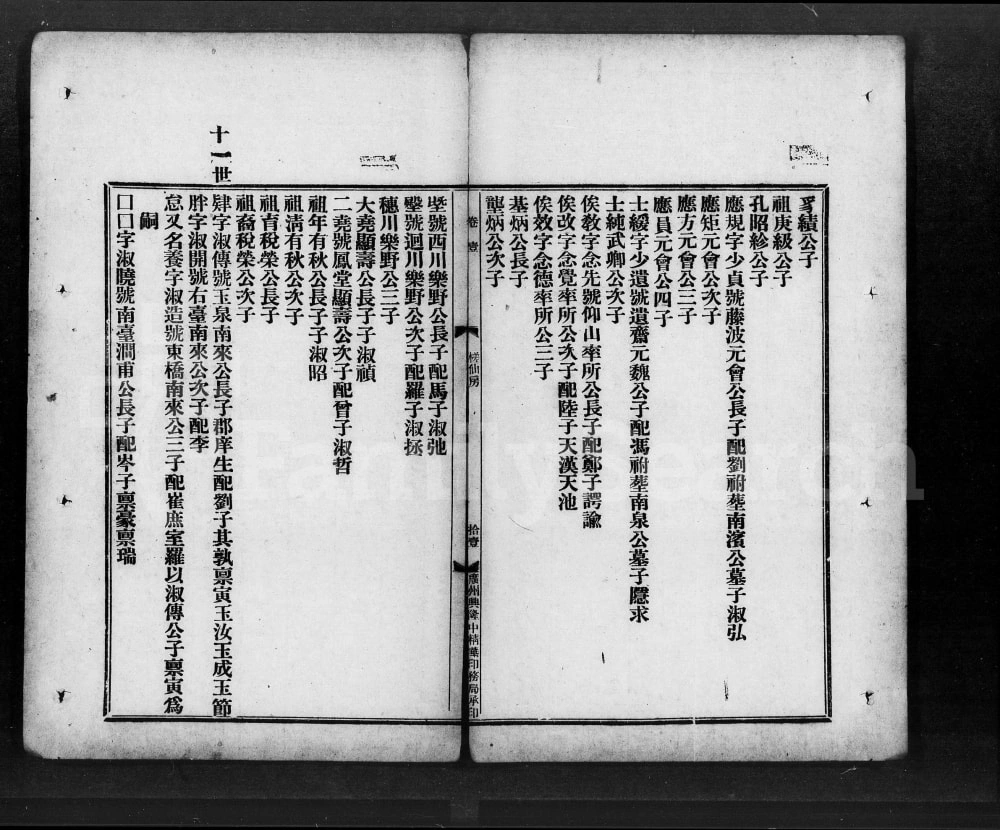 績公子
祖庚級公子
孔昭紾公子
應規字少貞號藤波元會公長子配劉祔塟南濱公墓子淑弘
應矩元會公次子
應方元會公三子
應員元會公四子
士綬字少遺號遺齋元魏公子配馮祔塟南泉公墓子隱求
士純武卿公次子
俟教字念先號仰山率所公長子配鄭子諤諭
俟改字念覺率所公次子配陸子天漢天池
俟效字念德率所公三子
基炳公長子
壟炳公次子
卷壹
槎仙房
拾壹
廣州興隆中精華印務局承印
號西川樂野公長子配馬子淑弛
壑號迴川樂野公次子配羅子淑拯
穗川樂野公三子
大堯顯壽公長子子淑禎
二堯號鳳堂顯壽公次子配曾子淑哲
祖年有秋公長子子淑昭
祖淸有秋公次子
祖育稅榮公長子
祖裔稅榮公次子
十一世
肄字淑傳號玉泉南來公長子郡庠生配劉子其孰禀寅玉汝玉成玉節
胖字淑開號右臺南來公次子配李
怠又名養字淑造號東橋南來公三子配崔庶室羅以淑傳公子禀寅爲
嗣
囗囗字淑曉號南臺澗甫公長子配岑子禀豪禀瑞
Family Search